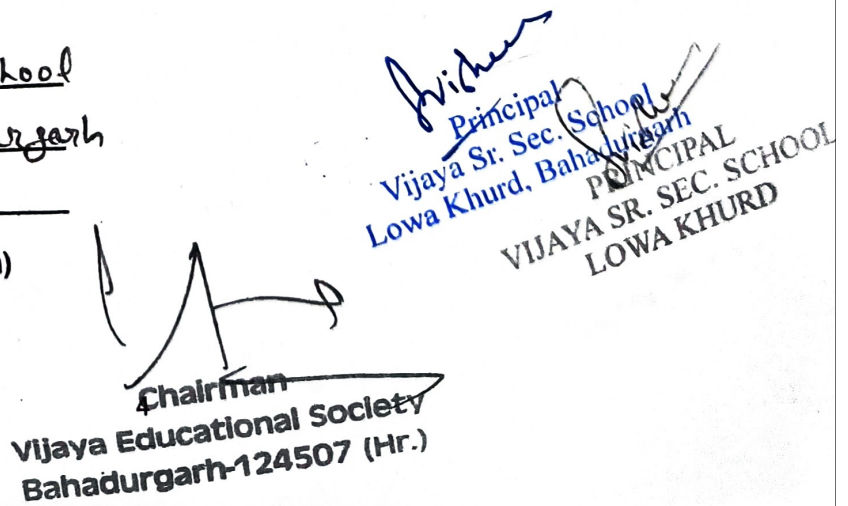 hool
rgarh
Principal
Vijaya Sr. Sec. School
Lowa Khurd, Bahadurgarh
PRINCIPAL
VIJAYA SR. SEC. SCHOOL
LOWA KHURD
)
Chairman
4
Vijaya Educational Society
Bahadurgarh-124507 (Hr.)